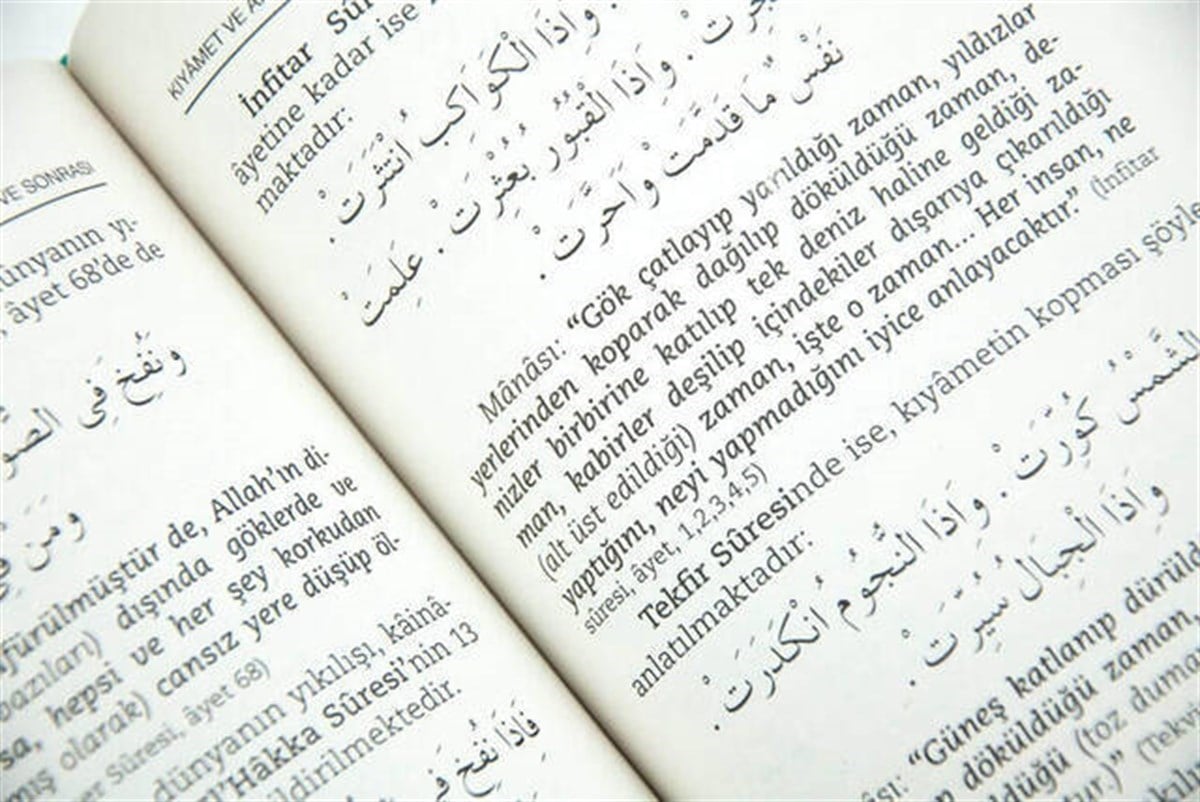 VE SONRASI
ünyanın yı-
, âyet 68'de de
وَنُفِخَ فِى الصُّو
وَمَنْ فِ
füRülmüştür de, Allah'ın di-
bazıları) dışında göklerde ve
sa, hepsi ve her şey korkudan
mış olarak) cansız yere düşüp öl-
er Sûresi, âyet 68)
dünyanın yıkılışı, kâinâ-
el'Hâkka Sûresi'nin 13
ldirilmektedir.
فَاِذَا نُفِخَ فِى
KIYÂMET VE
İnfitar Sûr
âyetine kadar ise
maktadır:
وَاِذَا الْكَوَاكِبُ انْتَثَرَتْ.
جِّرَتْ. وَاِذَا الْقُبُورُ بُعْثِرَتْ. عَلِمَتْ
نَفْسٌ مَا قَدَّمَتْ وَاَخَّرَتْ.
Mânâsı: “Gök çatlayıp yarıldığı zaman, yıldızlar
yerlerinden koparak dağılıp döküldüğü zaman, de-
nizler birbirine katılıp tek deniz haline geldiği za-
man, kabirler deşilip içindekiler dışarıya çıkarıldığı
(alt üst edildiği) zaman, işte o zaman... Her insan, ne
yaptığını, neyi yapmadığını iyice anlayacaktır.” (İnfitar
sûresi, âyet, 1,2,3,4,5)
Tekfir Sûresinde ise, kıyâmetin kopması şöyle
anlatılmaktadır:
الشَّمْسُ كُوِّرَتْ. وَاِذَا النُّجُومُ انْكَدَرَتْ.
وَاِذَا الْجِبَالُ سُيِّرَتْ.
âsı: “Güneş katlanıp dürüld
döküldüğü zaman,
ldüğü (toz duma
tur.)” (Tekvi